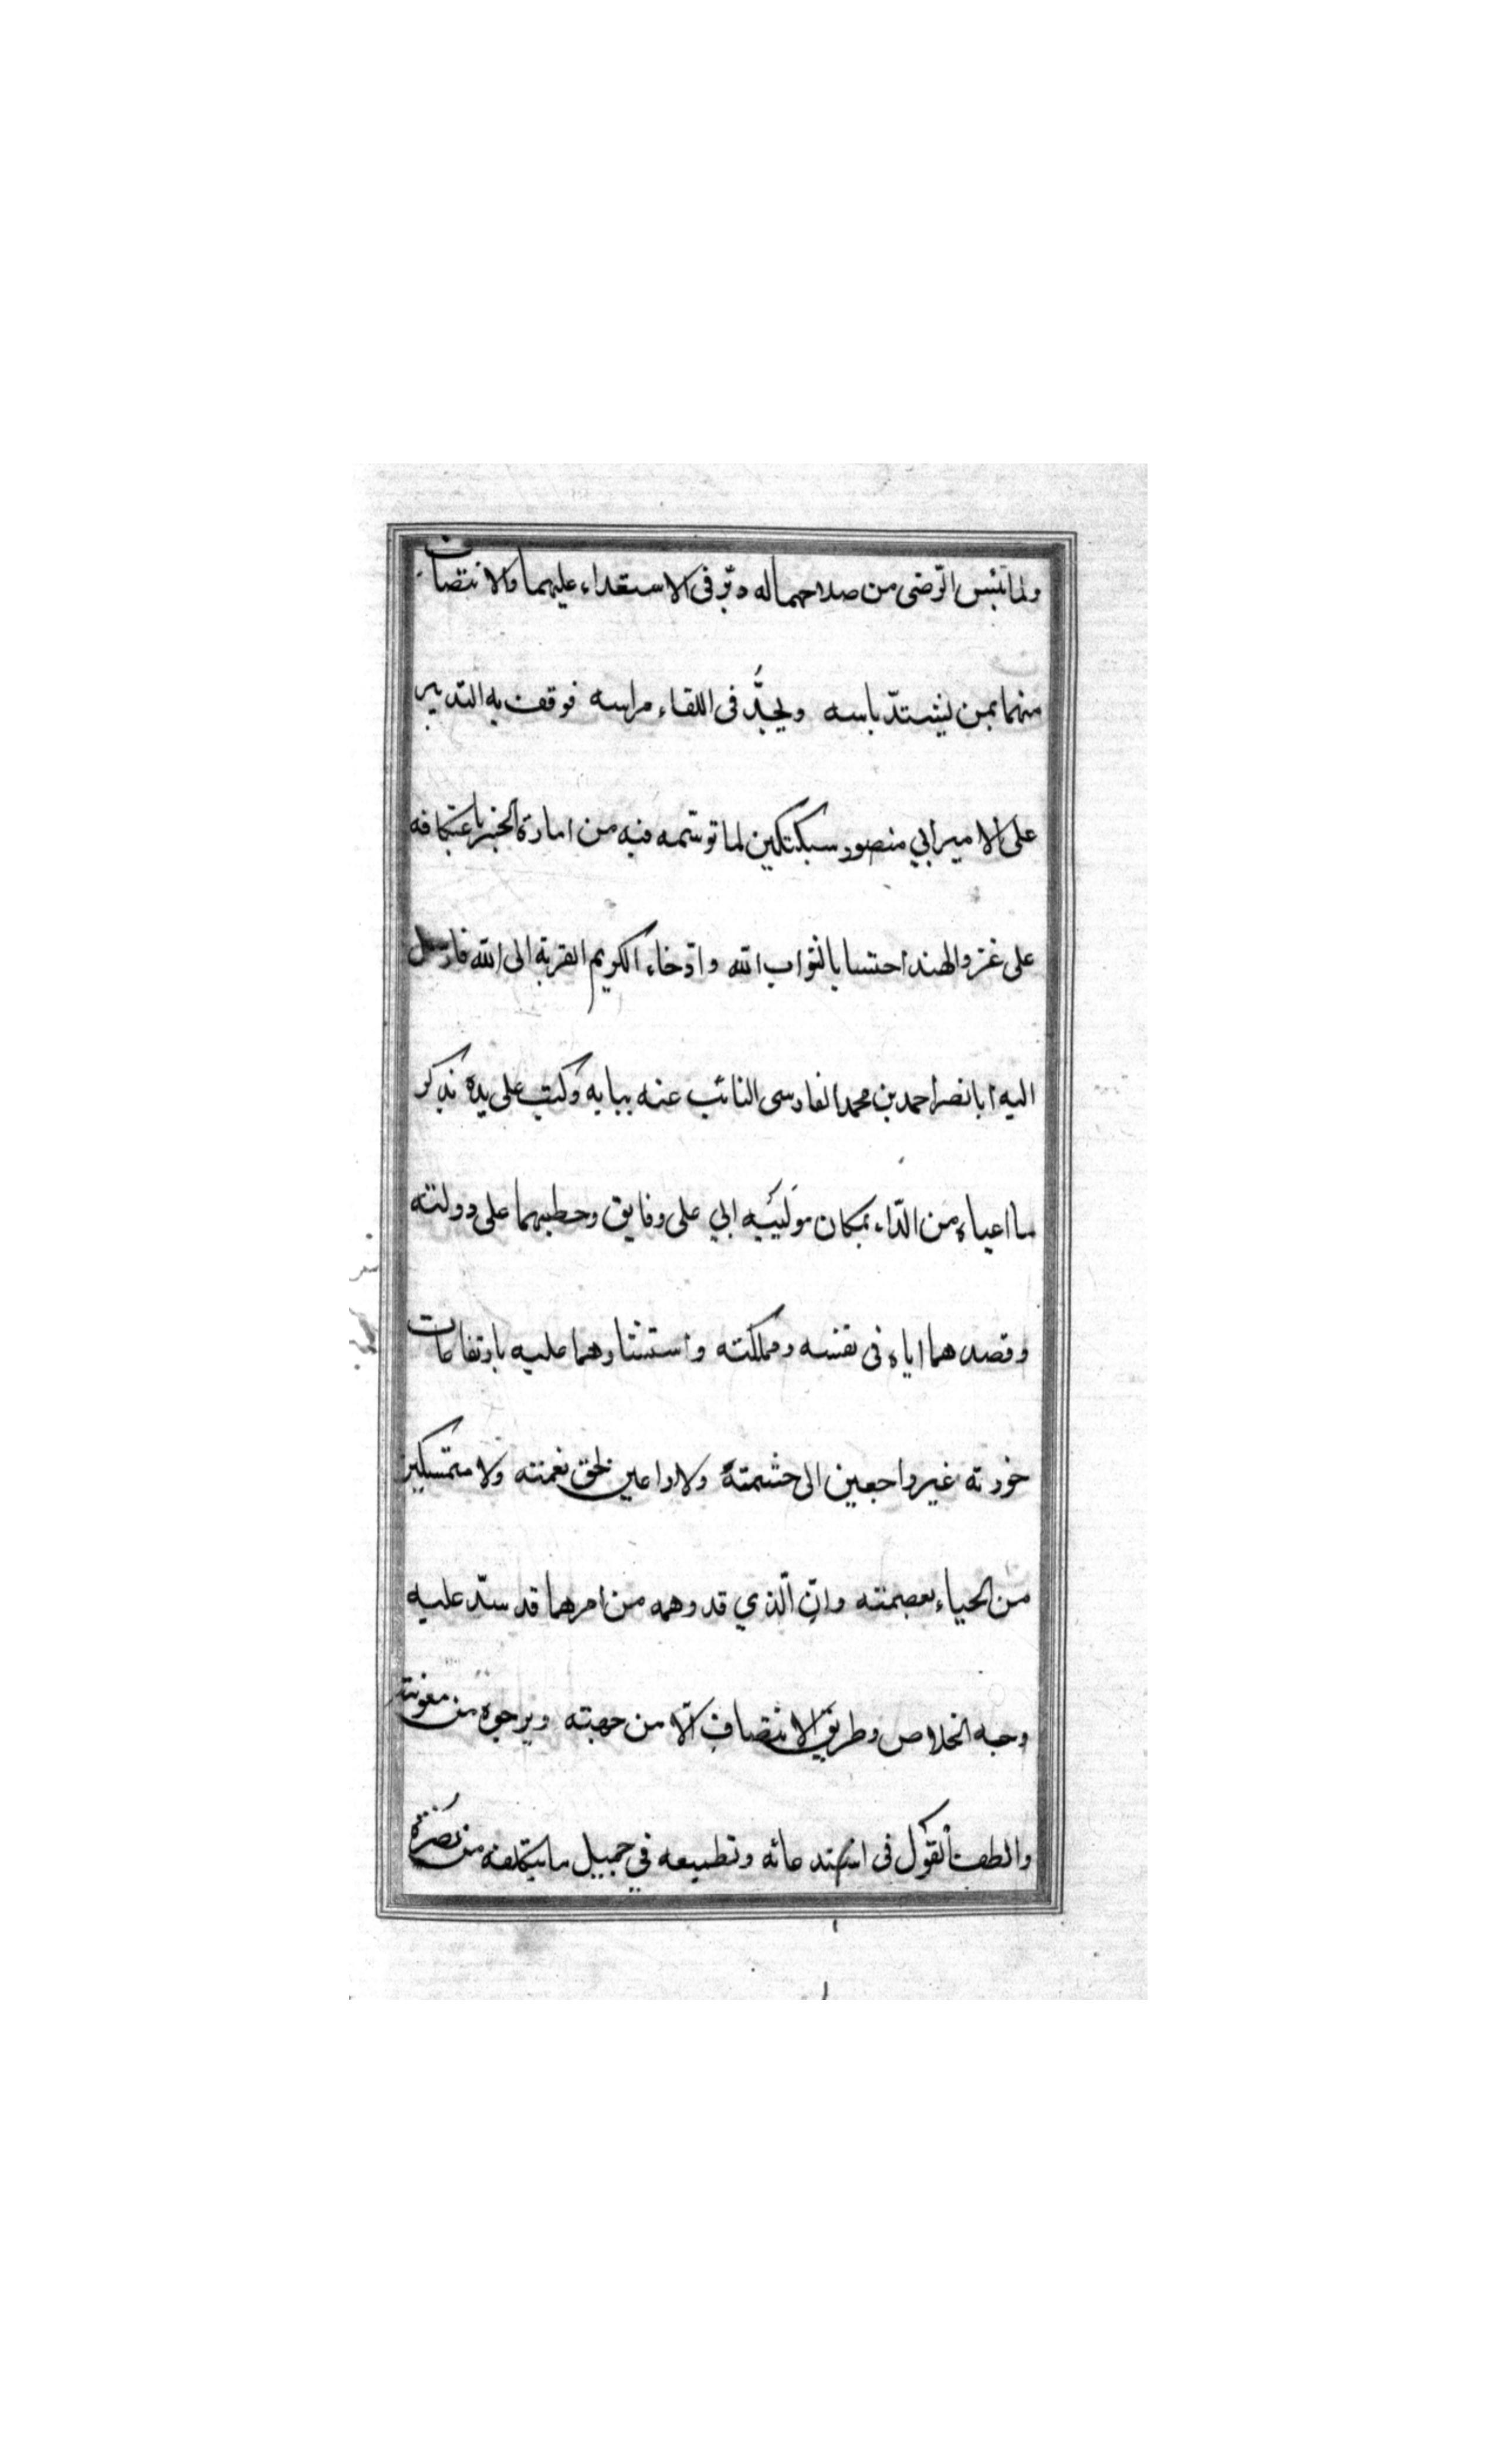 ولما يئس الرّضى من صلاحهما له دبّر فى الاستعداء عليهما والانتصاف
منهما بمن يشتدّ باسه ويجدّ فى اللقاء مراسه فوقف به التدبير
على الامير ابي منصور سبكتكين لما توسّمه فيه من امارة الخير باعتكافه
على غزو الهند احتسابا لثواب الله وادخاء الكريم القربة الى الله فارسل
اليه ابا نصر احمد بن محمد الفارسى النائب عنه ببابه وكتب على يده يذكر
ما اعياه من الدّاء بمكان موليّيه ابي على وفايق وحطبهما على دولته
وقصدهما اياه فى نفسه ومملكته واستئثارهما عليه بارتفاعات
خورته غير راجعين الى حشمته ولا راعين لحق نعمته ولا متمسكين
من الحياء بعصمته وانّ الّذي قد وهمه من امرهما قد سدّ عليه
وجه الخلاص وطريق الانتصاف الّا من جهته ويرجوه من معونته
والطف القول فى استدعائه وتطميعه في جميل ما يتكلفه من نصرته